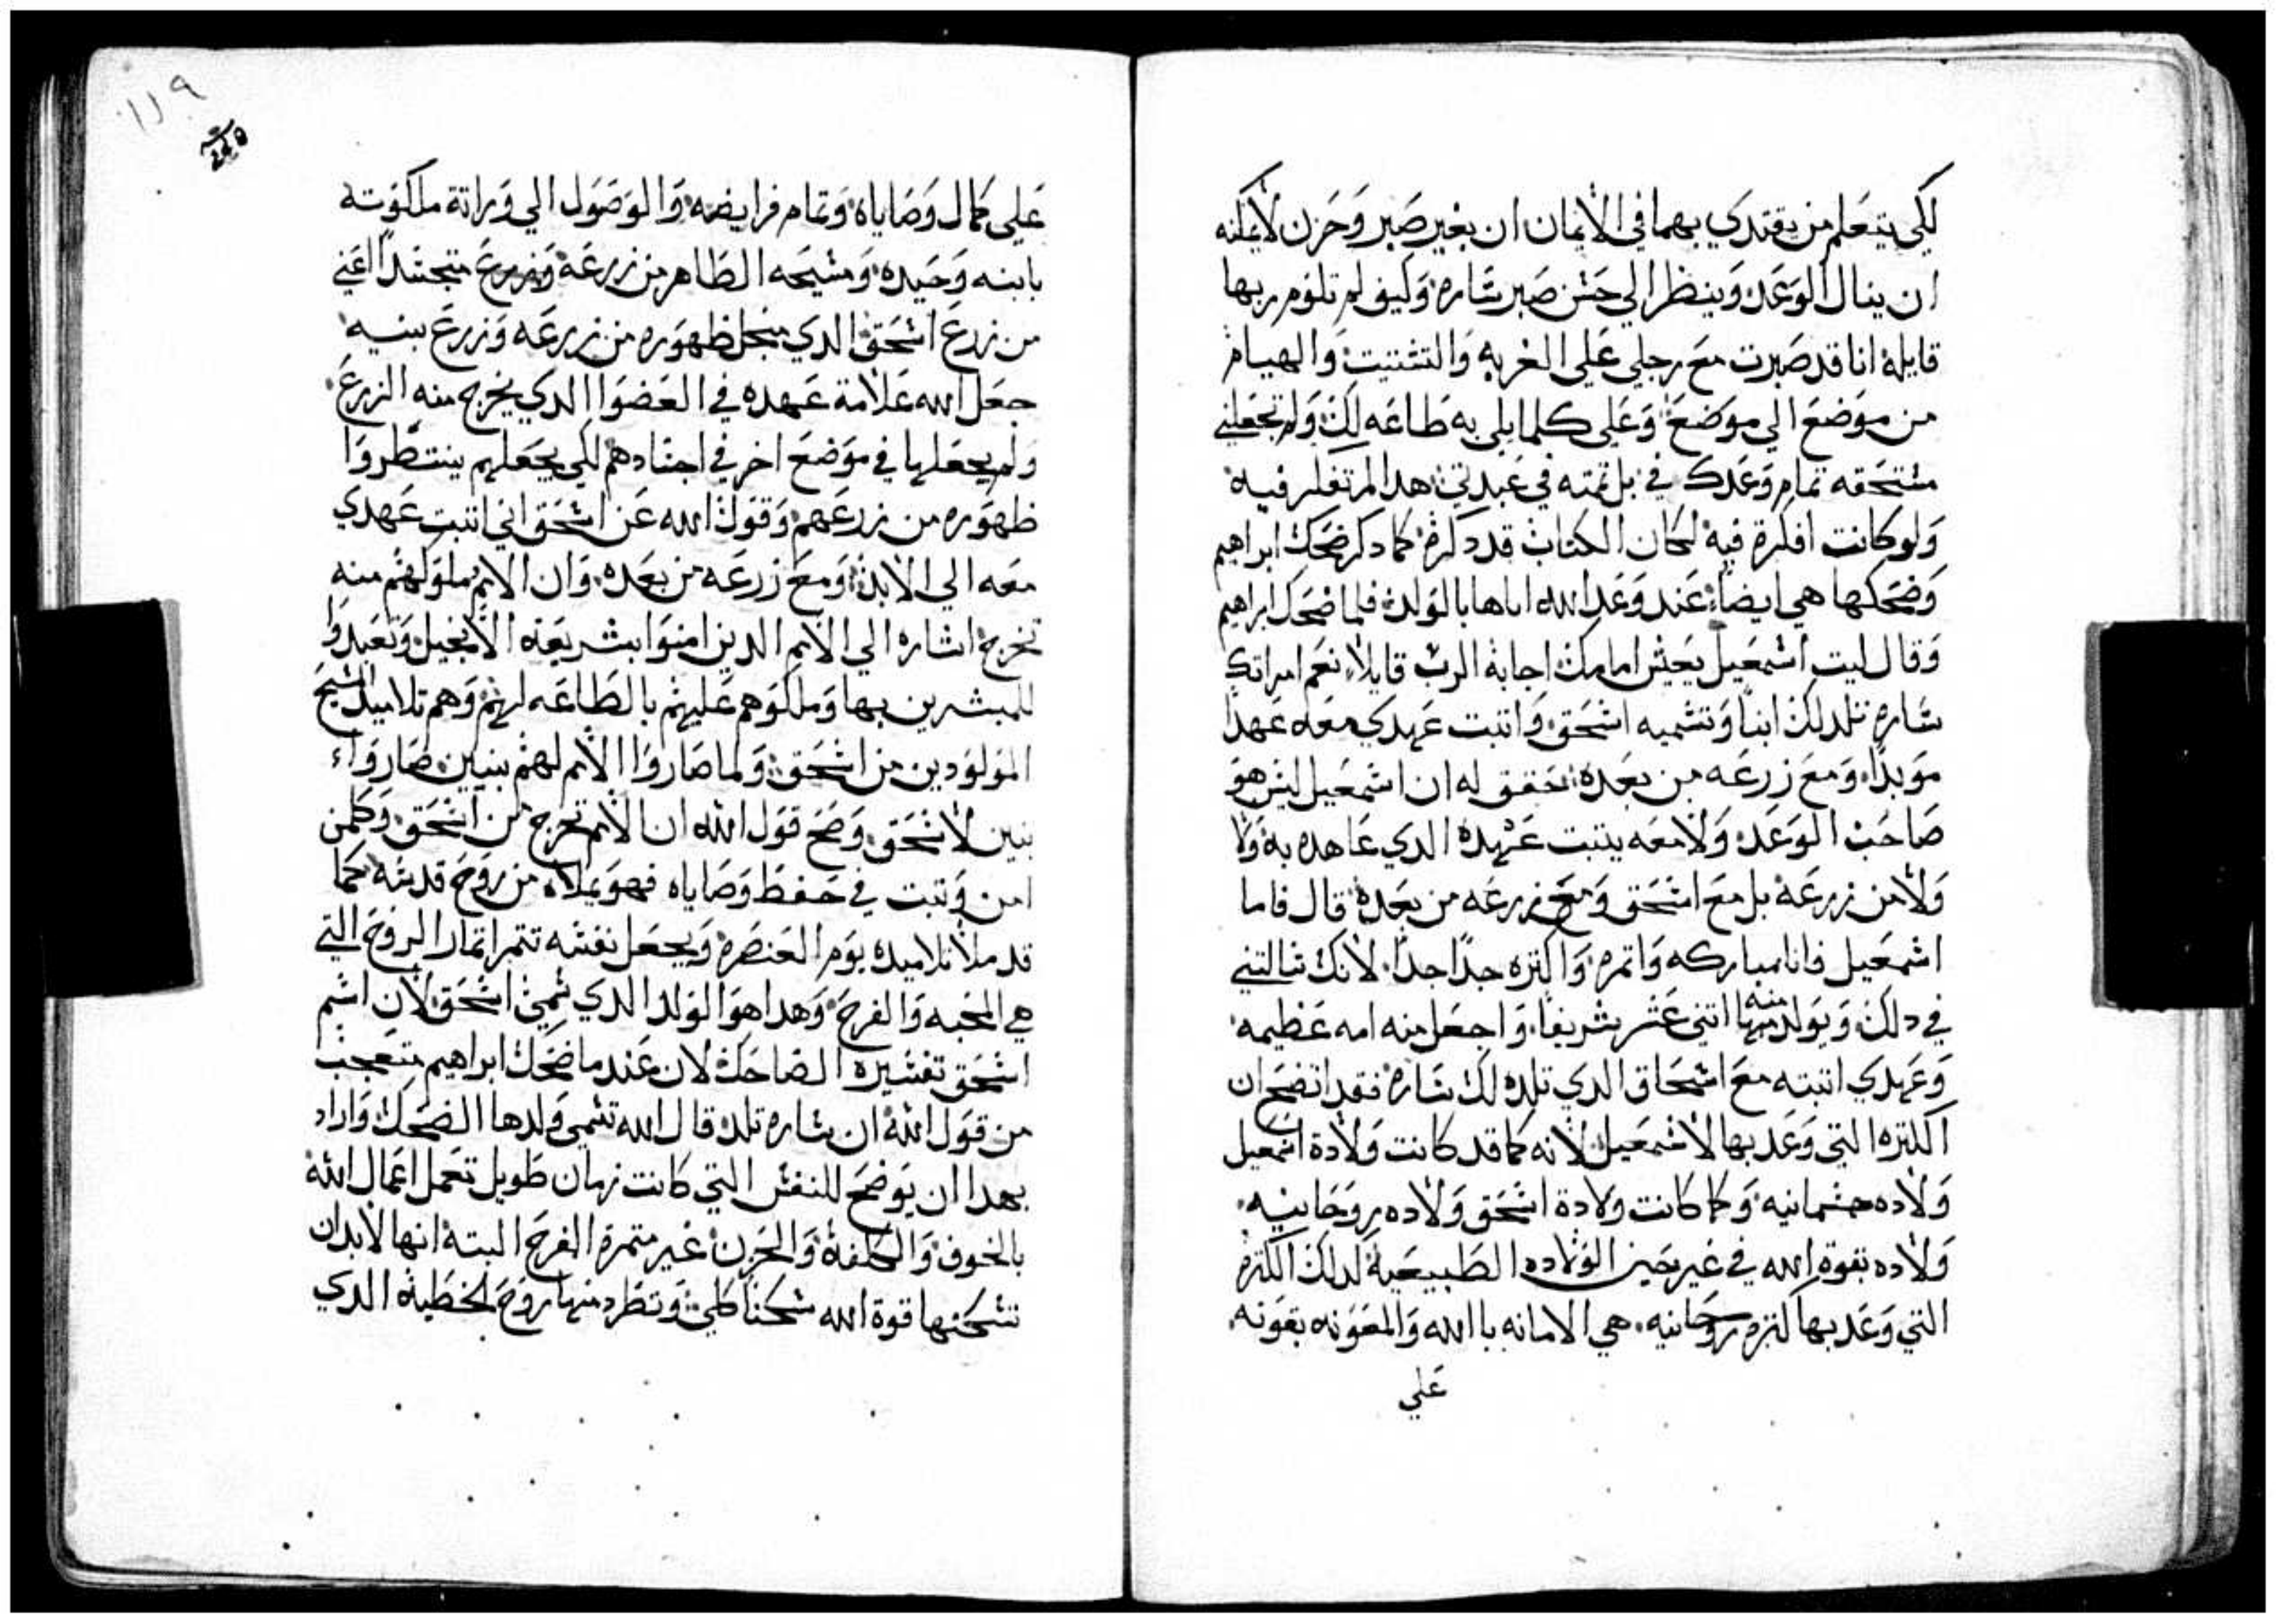 لكي يتعلم من يقتدي بهما في الأيمان ان بغير صبر وحزن لا يمكنه
ان ينال الوعد وينظر الي حسن صبر ساره وكيف لم تلوم ربها
قايلة انا قد صبرت مع رجلي علي الغربه والتشتيت والهيام
من موضع الي موضع وعلي كلما بلي به طاعه لك ولم تجعلني
مستحقه تمام وعدك في بل تمته في عبدتي هدا لم تفكر فيه
ولو كانت افكرة فيه لكان الكتاب قد دكرة كما دكر ضحك ابراهيم
وضحكها هي ايضا عند وعد الله اياها بالولد فلما ضحك ابراهيم
وقال ليت اسمعيل يعيش امامك اجابة الرب قايلا نعم امراتك
ساره تلد لك ابنا وتسميه اسحق واتبت عهدي معه عهدا
موبدا ومع زرعه من بعده حقق له ان اسمعيل ليس هو
صاحب الوعد ولا معه يتبت عهده الدي عاهده به ولا
ولا من زرعه بل مع اسحق ومع زرعه من بعده قال فاما
اسمعيل فانا مباركه واتمره واكتره جدا جدا لانك سالتني
في دلك ويولد منه اتني عشر شريفا واجعل منه امه عظيمه
وعهدي اتبته مع اسحاق الدي تلده لك ساره فقد اتضح ان
الكتره التي وعد بها لاسمعيل لانه كما قد كانت ولادة اسمعيل
ولاده جسمانيه وكما كانت ولادة اسحق ولاده روحانيه
ولاده بقوة الله في غير حين الولاده الطبيعية كدلك الكترة
التي وعد بها كتره روحانيه هي الامانه باالله والمعونه بقوته
علي
١١٩
علي كمال وصاياه وتمام فرايضه والوصول الي وراتة ملكوته
بابنه وحيده ومسيحه الظاهر من زرعه وزرع متجسدا اعني
من زرع اسحق الدي منجل ظهوره من زرعه وزرع بنيه
جعل الله علامة عهده في العضوا الدي يخرج منه الزرع
ولم يجعلها في موضع اخر في اجسادهم لكي يجعلهم ينتظروا
ظهوره من زرعهم وقول الله عن اسحق اني اتبت عهدي
معه الي الابد ومع زرعه من بعده وان الامم وملوكهم منه
تخرج اشاره الي الامم الدين امنوا بشريعة الانجيل وتعبدوا
للمبشرين بها وملكوهم عليهم بالطاعه لهم وهم تلاميد المسيح
المولودين من اسحق ولما صاروا الامم لهم بنين صارواء
بنين لاسحق وضح قول الله ان الامم تخرج من اسحق وكلمن
امن وتبت في حفظ وصاياه فهو يملاه من روح قدسه كما
قد ملا تلاميده يوم العنصره ويجعل نفسه تتمر اتمار الروح التي
هي المحبه والفرح وهدا هو الولد الدي سمي اسحق لان اسم
اسحق تفسيره الضاحك لان عند ما ضحك ابراهيم متعجب
من قول الله ان ساره تلد قال الله تسمي ولدها الضحك واراد
بهدا ان يوضح للنفس التي كانت زمان طويل تعمل اعمال الله
بالخوف والكلفة والحزن غير متمرة الفرح البته انها لابد ان
تسكنها قوة الله سكنا كلي وتطرد منها روح الخطية الدي